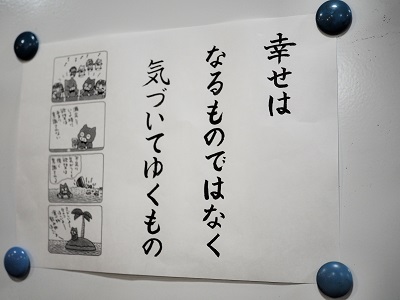 幸せは
なるものではなく
気づいてゆくもの